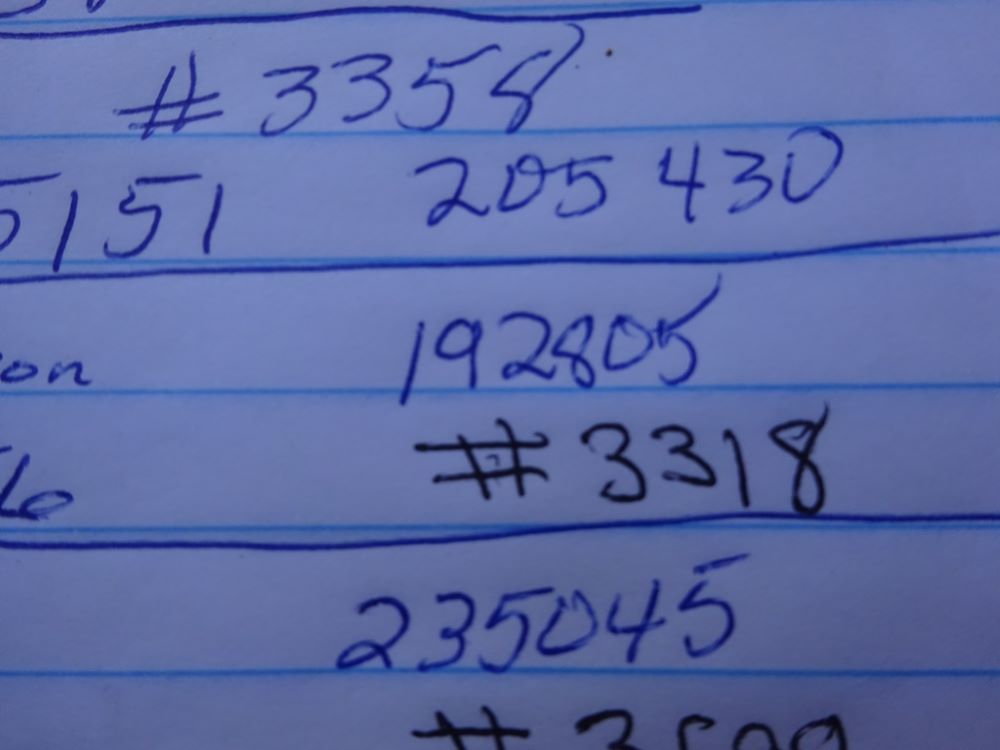 #3358
5151 205 430
on 192805
#3318
235045